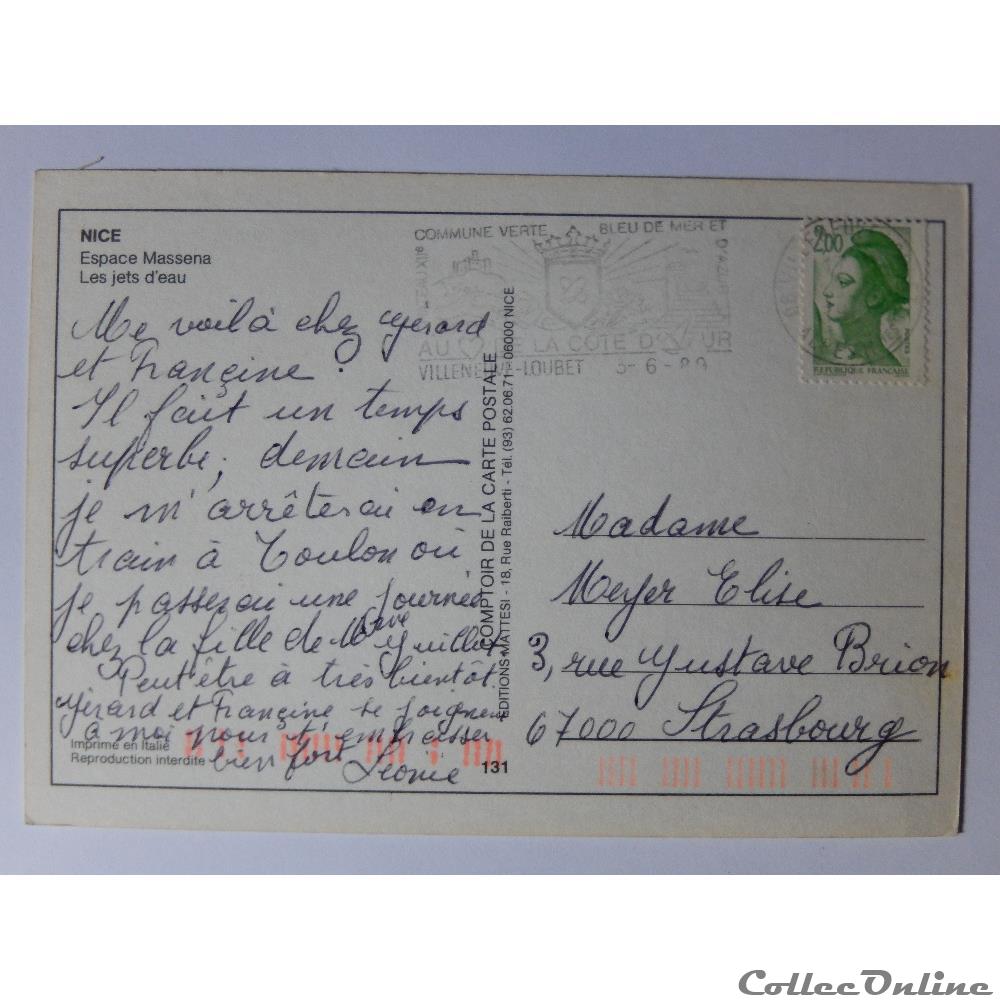 NICE
Espace Massena
Les jets d'eau
Me voilà chez Gérard
et Françine.
Il fait un temps
superbe, demain
je m'arrêterai en
train à Toulon où
je passerai une journée
chez la fille de Mme Guillot
Peut être à très bientôt.
Gérard et Françine se joignent
à moi pour t'embrasser
bien fort Léonie
Imprimé en Italie
Reproduction interdite
131
EDITIONS MATTESI - 18, Rue Raiberti - Tél. (93) 62.06.71 - 06000 NICE
COMPTOIR DE LA CARTE POSTALE
COMMUNE VERTE BLEU DE MER ET D'AZUR
AU DE LA COTE D'AZUR
VILLENEUVE-LOUBET 3-6-89
2,00
REPUBLIQUE FRANÇAISE
Madame
Meyer Elise
3, rue Gustave Brion
67000 Strasbourg
CollecOnline